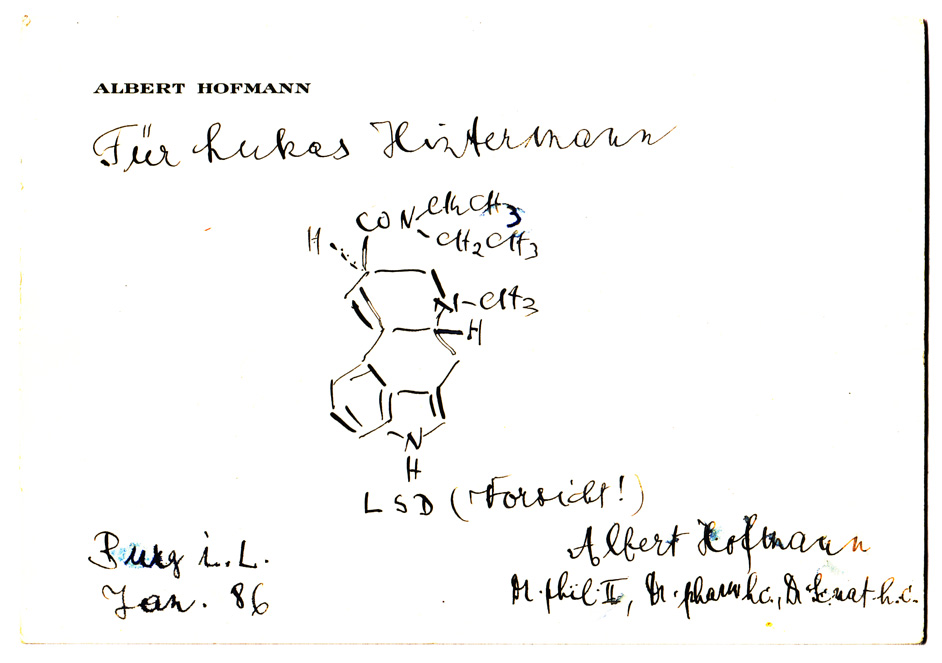 ALBERT HOFMANN
Für Lukas Hintermann
CON CH2CH3
CH2CH3
H
N-CH3
H
N
H
LSD (Vorsicht!)
Burg i. L.
Jan. 86
Albert Hofmann
Dr. phil. II, Dr. pharm h.c., Dr. Sc. nat. h.c.